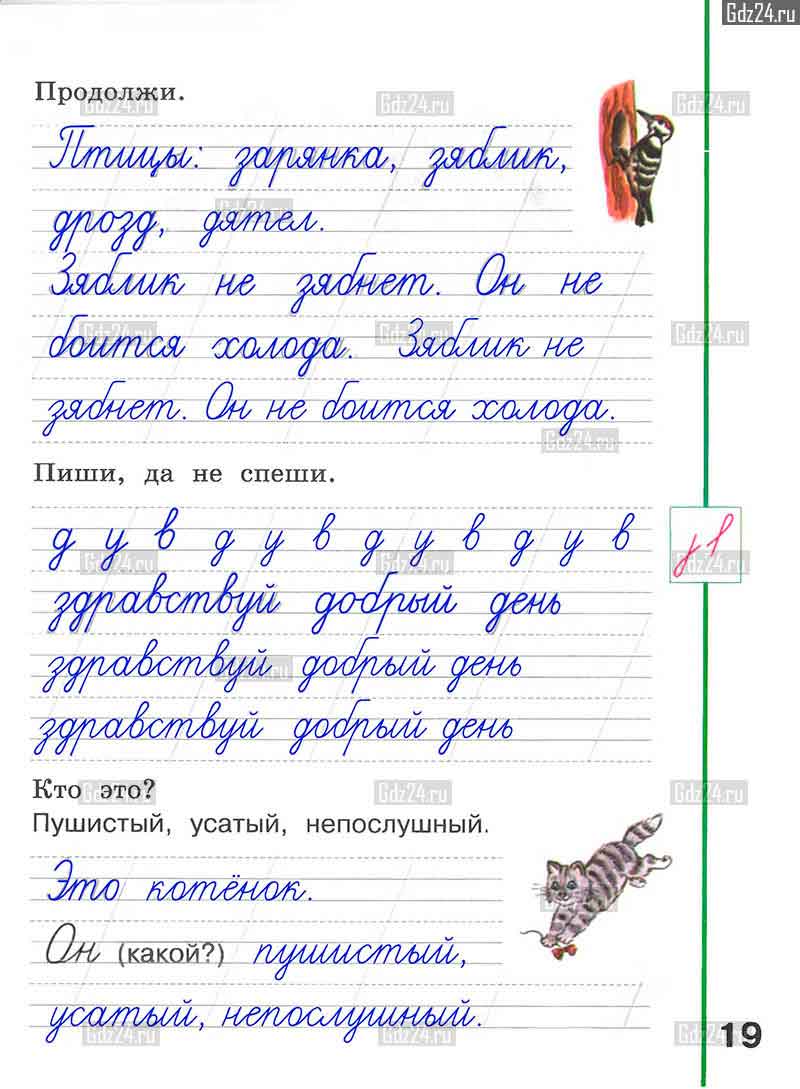 Gdz24.ru
Продолжи.
Птицы: зарянка, зяблик,
дрозд, дятел.
Зяблик не зябнет. Он не
боится холода. Зяблик не
зябнет. Он не боится холода.
Пиши, да не спеши.
д у в д у в д у в д у в
здравствуй добрый день
здравствуй добрый день
здравствуй добрый день
Кто это?
Пушистый, усатый, непослушный.
Это котёнок.
Он (какой?) пушистый,
усатый, непослушный.
19